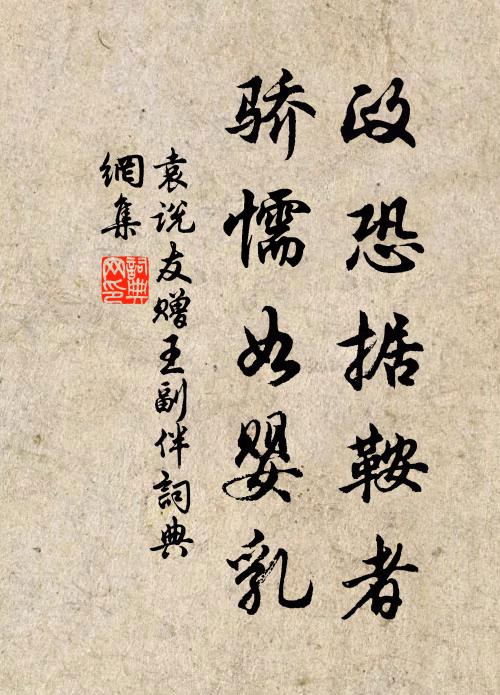 政恐据鞍者
骄懦如婴乳
袁说友赠王副伴词典
網集
詞典網印